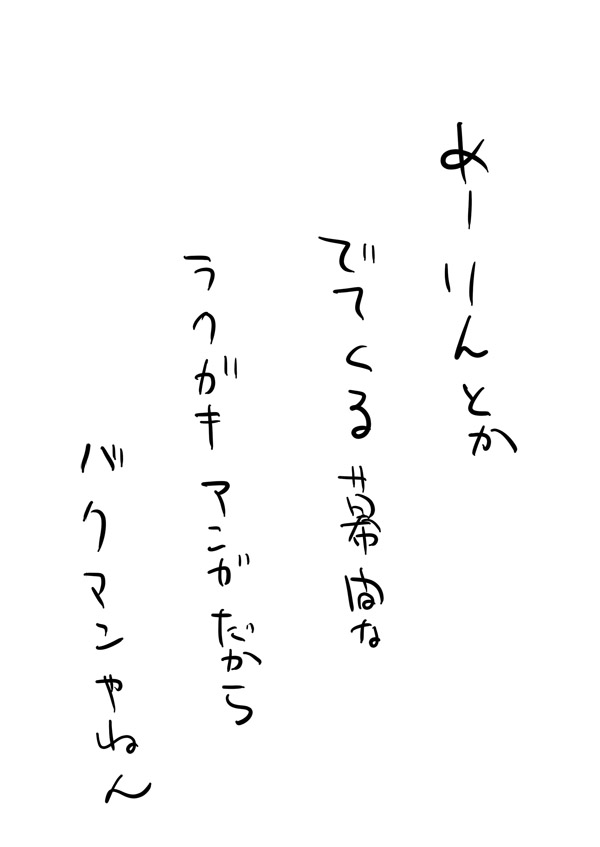 めーりんとか
でてくる幕間な
ラクガキマンガだから
バクマンやねん